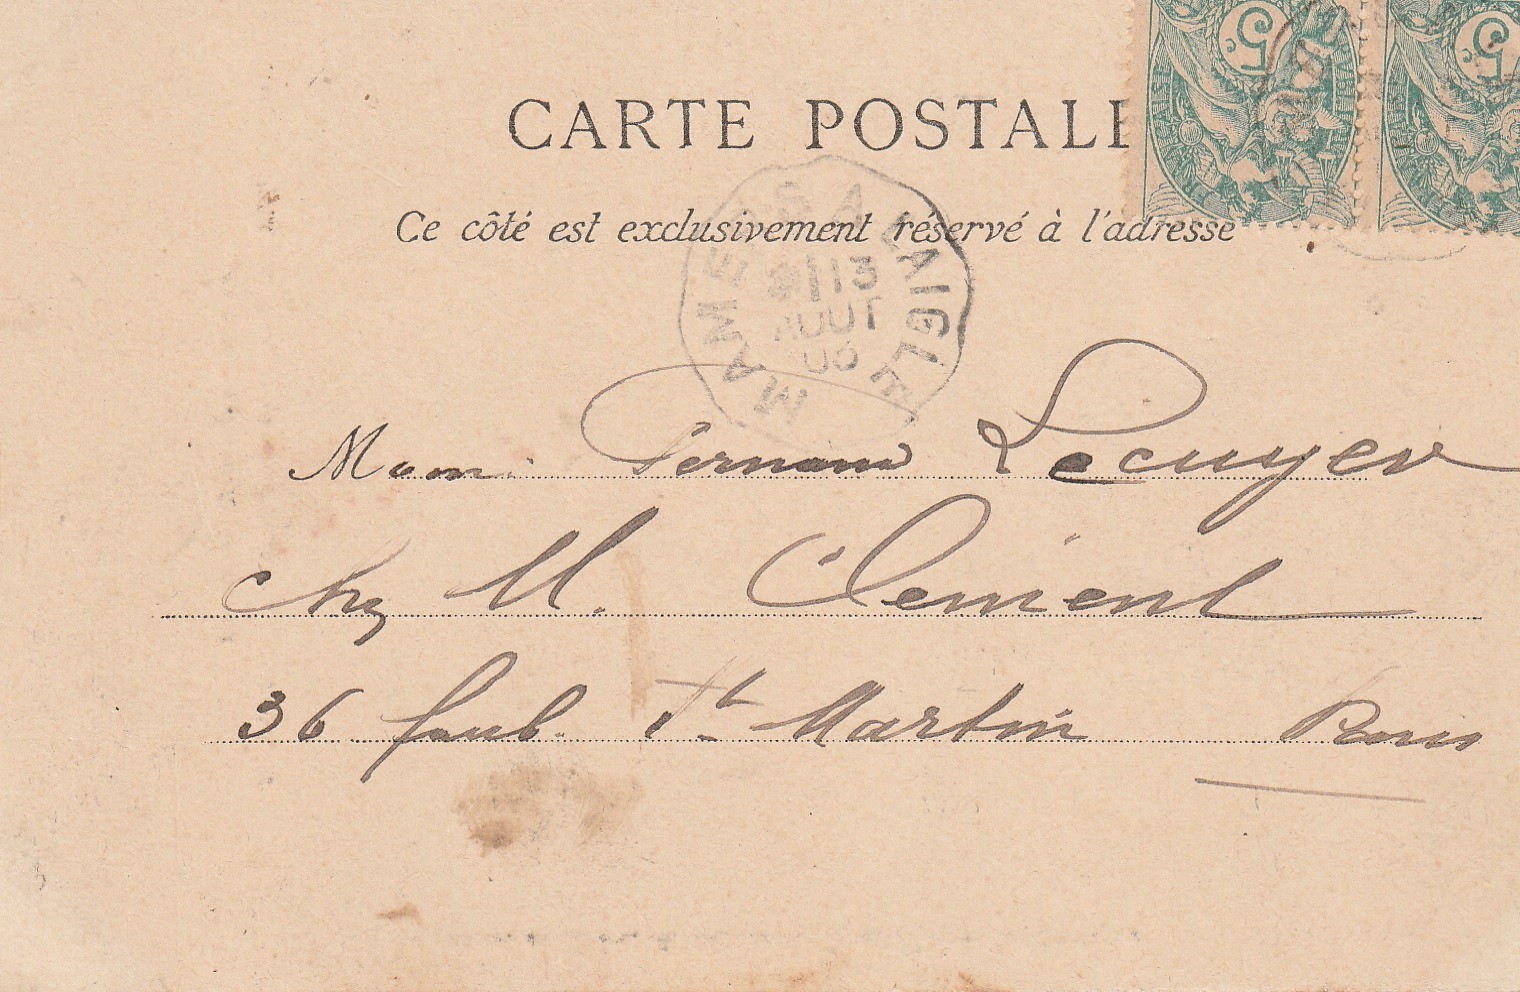 5c 5c
CARTE POSTALE
Ce côté est exclusivement réservé à l'adresse
MAMERS A LAIGLE
13
AOUT
03
Mon Fernand Lecuyer
chez M. Clement
36 faub. St Martin Paris